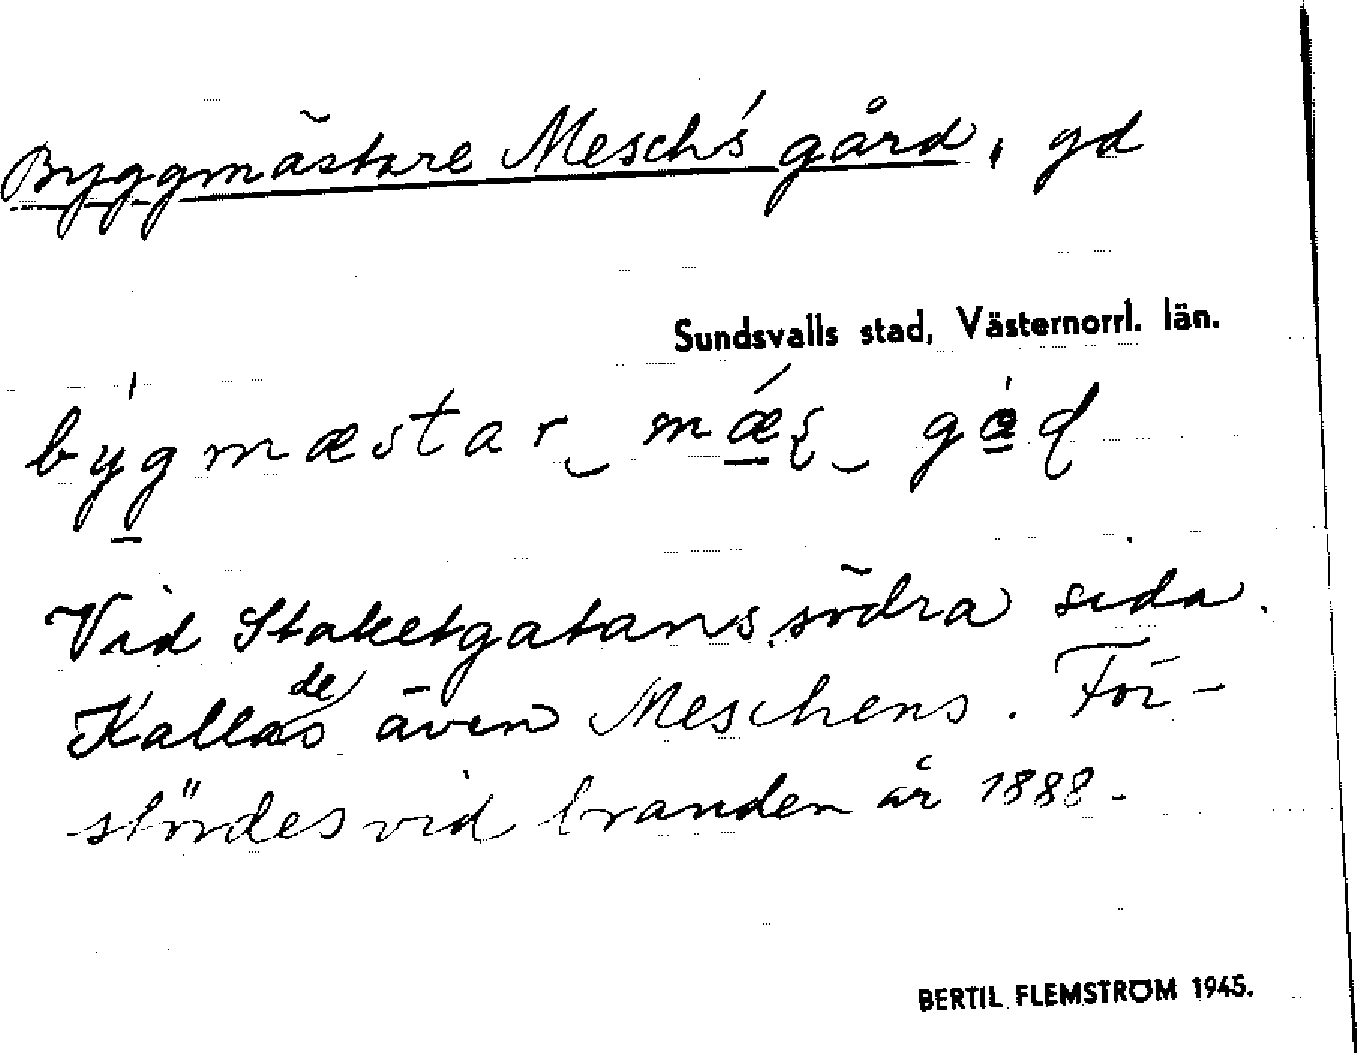 Byggmästare Mesch's gård, gd
Sundsvalls stad, Västernorrl. län.
býgmæstar‿mǽʂ‿gáɖ
Vid Staketgatans södra sida.
Kallades även Meschens. För-
stördes vid branden år 1888.
BERTIL FLEMSTRÖM 1945.